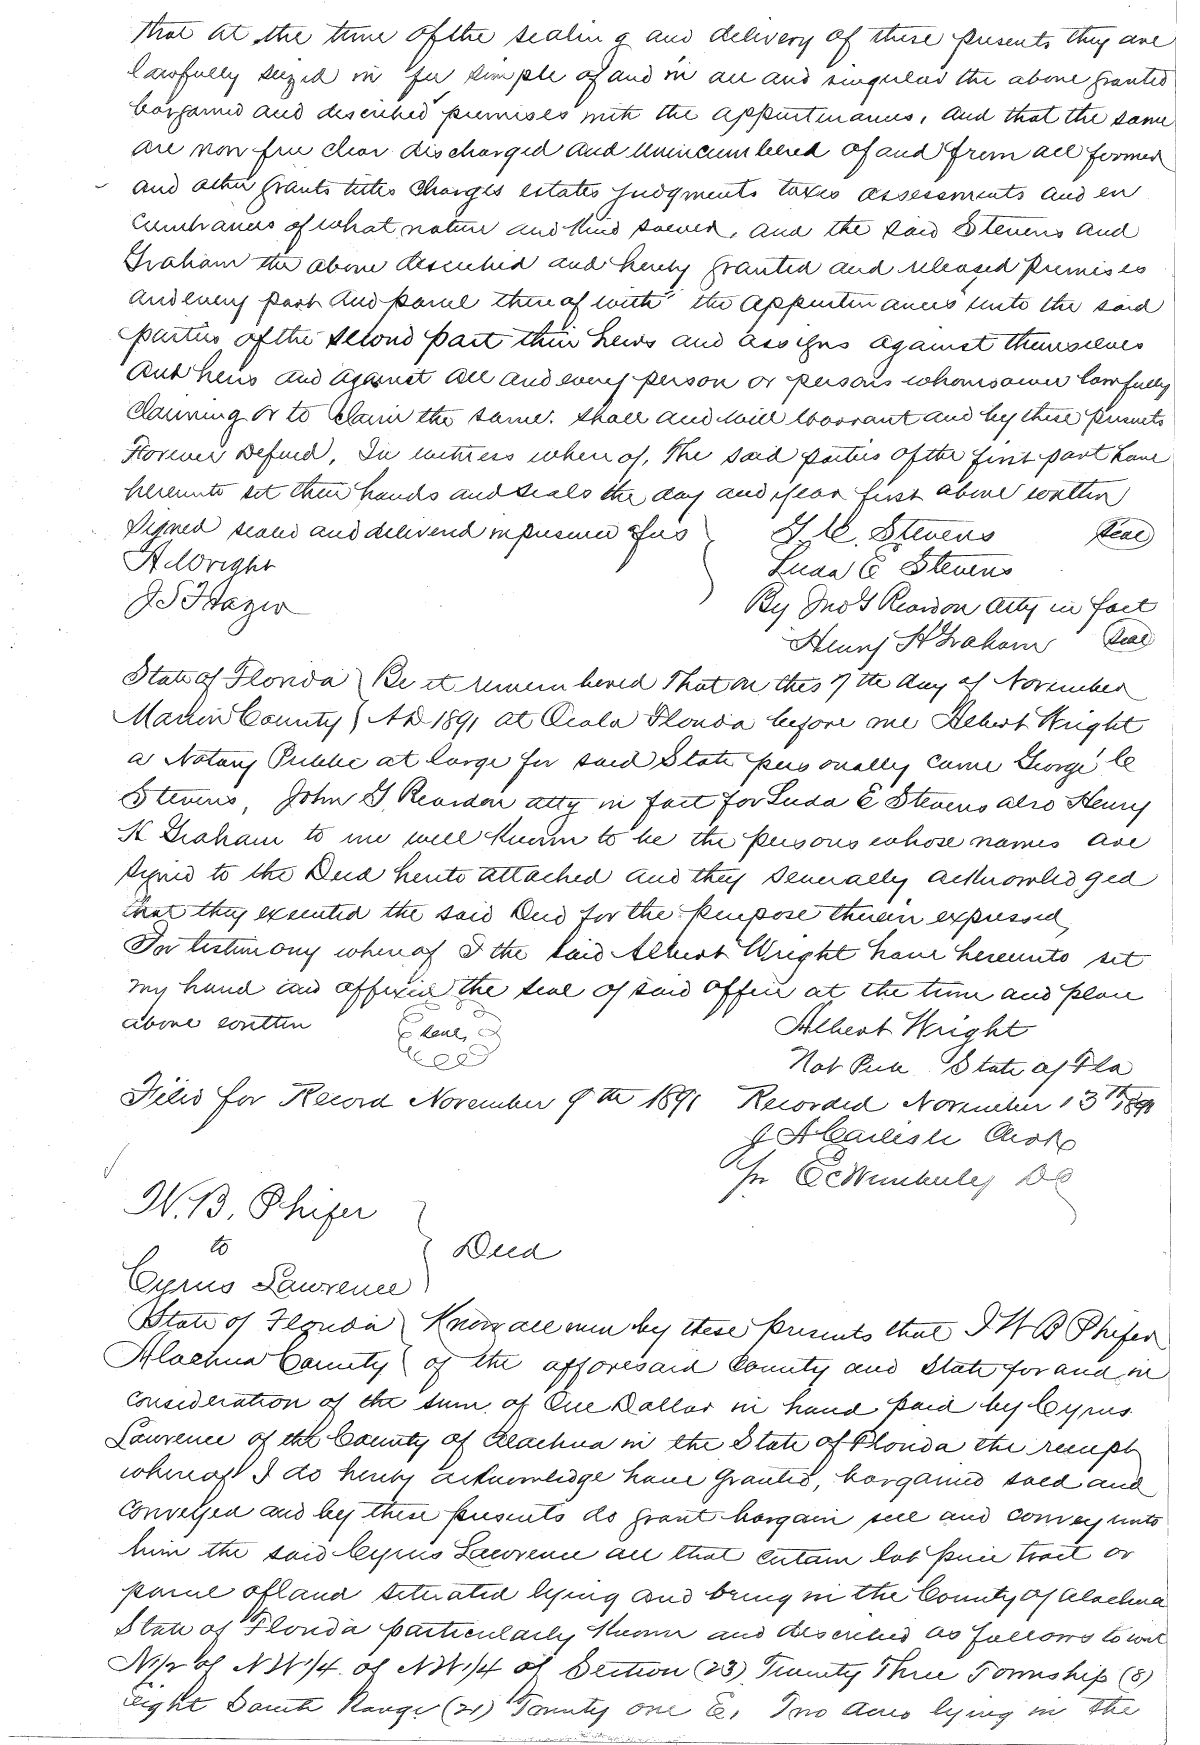 that at the time of the sealing and delivery of these presents they are
lawfully seized in fee simple of and in all and singular the above granted
bargained and described premises with the appurtenances, and that the same
are now free clear discharged and unincumbered of and from all former
and other grants titles charges estates judgments taxes assessments and en
cumbrances of what nature and kind soever, and the said Stevens and
Graham the above described and hereby granted and released premises
and every part and parcel thereof with the appurtenances unto the said
parties of the second part their heirs and assigns against themselves
and heirs and against all and every person or persons whomsoever lawfully
claiming or to claim the same. shall and will warrant and by these presents
Forever Defend, In witness whereof, The said parties of the first part have
hereunto set their hands and seals the day and year first above written
Signed sealed and delivered in presence of us } G. C. Stevens (Seal)
A Wright
Luda E Stevens
J S Frazer
By Jno G Reardon Atty in fact
Henry H Graham (Seal)
State of Florida } Be it remembered That on this 7 th day of November
Marion County } AD 1891 at Ocala Florida before me Albert Wright
a Notary Public at large for said State personally came George C
Stevens, John G Reardon atty in fact for Luda E Stevens also Henry
H Graham to me well known to be the persons whose names are
signed to the Deed hereto attached and they severally acknowledged
that they executed the said Deed for the purpose therein expressed,
In testimony whereof I the said Albert Wright have hereunto set
my hand and affixed the seal of said office at the time and place
above written (Seal) Albert Wright
Not Pub State of Fla
Filed for Record November 9 th 1891 Recorded November 13 th 1891
J A Carlisle Clerk
pr E C Wimberley DC
W. B. Phifer
to } Deed
Cyrus Lawrence
State of Florida } Know all men by these presents that I W B Phifer
Alachua County } of the afforesaid County and State for and in
consideration of the sum of One Dollar in hand paid by Cyrus
Lawrence of the County of Alachua in the State of Florida the receipt
whereof I do hereby acknowledge have Granted, bargained sold and
conveyed and by these presents do grant bargain sell and convey unto
him the said Cyrus Lawrence all that certain lot piece tract or
parcel of land situated lying and being in the County of Alachua
State of Florida particularly known and described as follows to wit
N1/2 of NW1/4 of NW1/4 of Section (23) Twenty Three Township (8)
eight South Range (21) Twenty one E, Two Acres lying in the